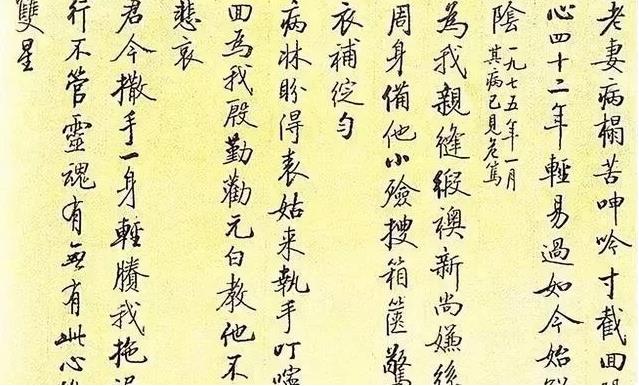 老妻病榻苦呻吟寸截回
心四十二年輕易過如今始
陰一九七五年一月
其病已見危篤
為我親縫緞襖新尚嫌絲
周身備他小殮搜箱篋驚
衣補綻勻
病牀盼得表姑来執手叮嚀
回為我殷勤勸元白教他不
悲哀
君今撒手一身輕賸我拖泥
行不管靈魂有無有此心
雙星